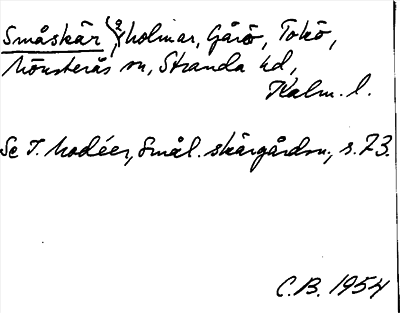 Småskär, holmar, Gårö, Tokö,
Mönsterås sn, Stranda hd,
Kalm. l.
Se I. Modéer, Smål. skärgårdsn., s. 73.
C.B. 1954